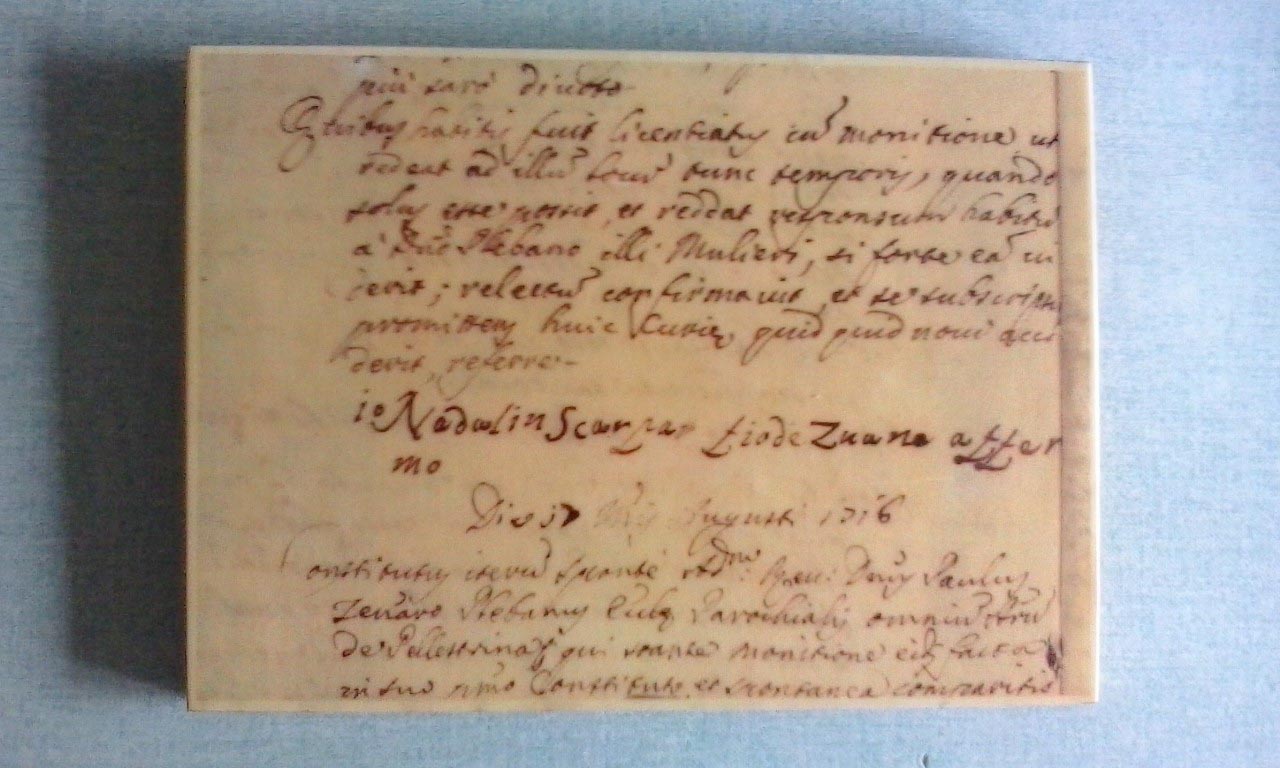 più sarò divoto
Quibus habitis fuit licentiatus cũ monitione ut
redeat ad illũ locũ tunc temporis, quando
solus esse possit, et reddat responsum habitũ
à Dno Plebano illi Mulieri, si forte eã in
perit; relectũ confirmavit, et se subscripsit
promittens huic Curiæ, quid quid novi acci
derit, referre.
io Nadalin Scarpa fiode Zuane affer
mo
Die 17 Augusti 1716
Constitutus iterũ sponte Rev: Dnus Paulus
Zenaro Plebanus Parochialis omniũ
de Pellestrina, qui stante monitione facta
in suo pmo Constituto, et spontanea